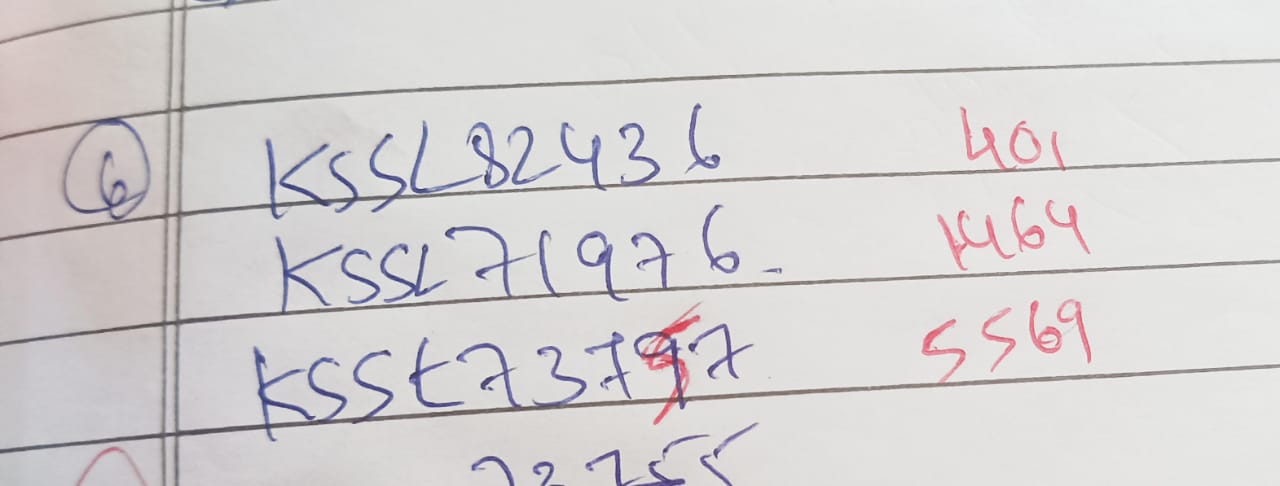 6 KSSL82436 401
KSSL71976. 1464
KSSL73757 5569